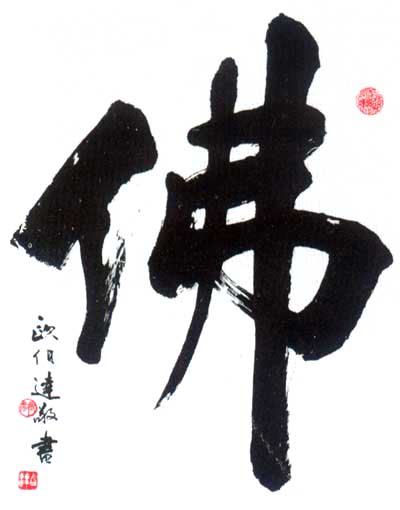 佛
欧伯達敬書